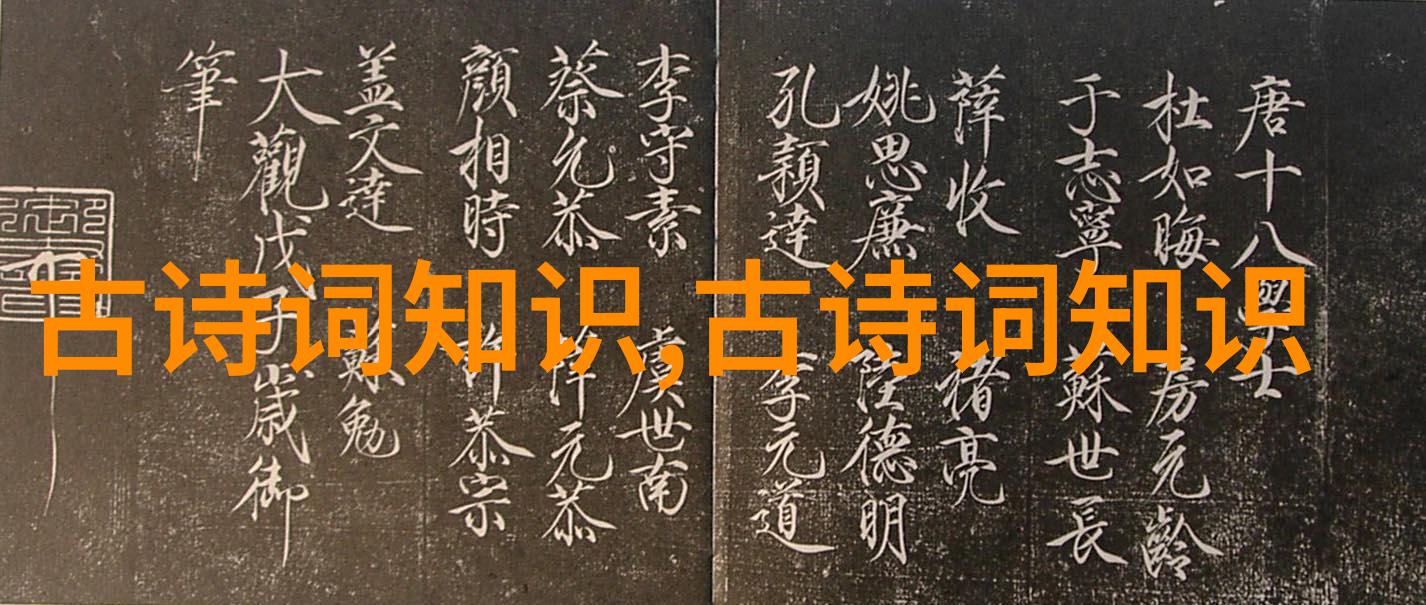 唐十八學士
杜如晦 房元齡
于志寧 蘇世長
薛收 褚亮
姚思廉 陸德明
孔穎達 李元道
李守素 虞世南
蔡允恭 薛元恭
顔相時 許恭宗
盖文達 蘇勉
大觀戊子歲御
筆
古诗词知识,古诗词知识